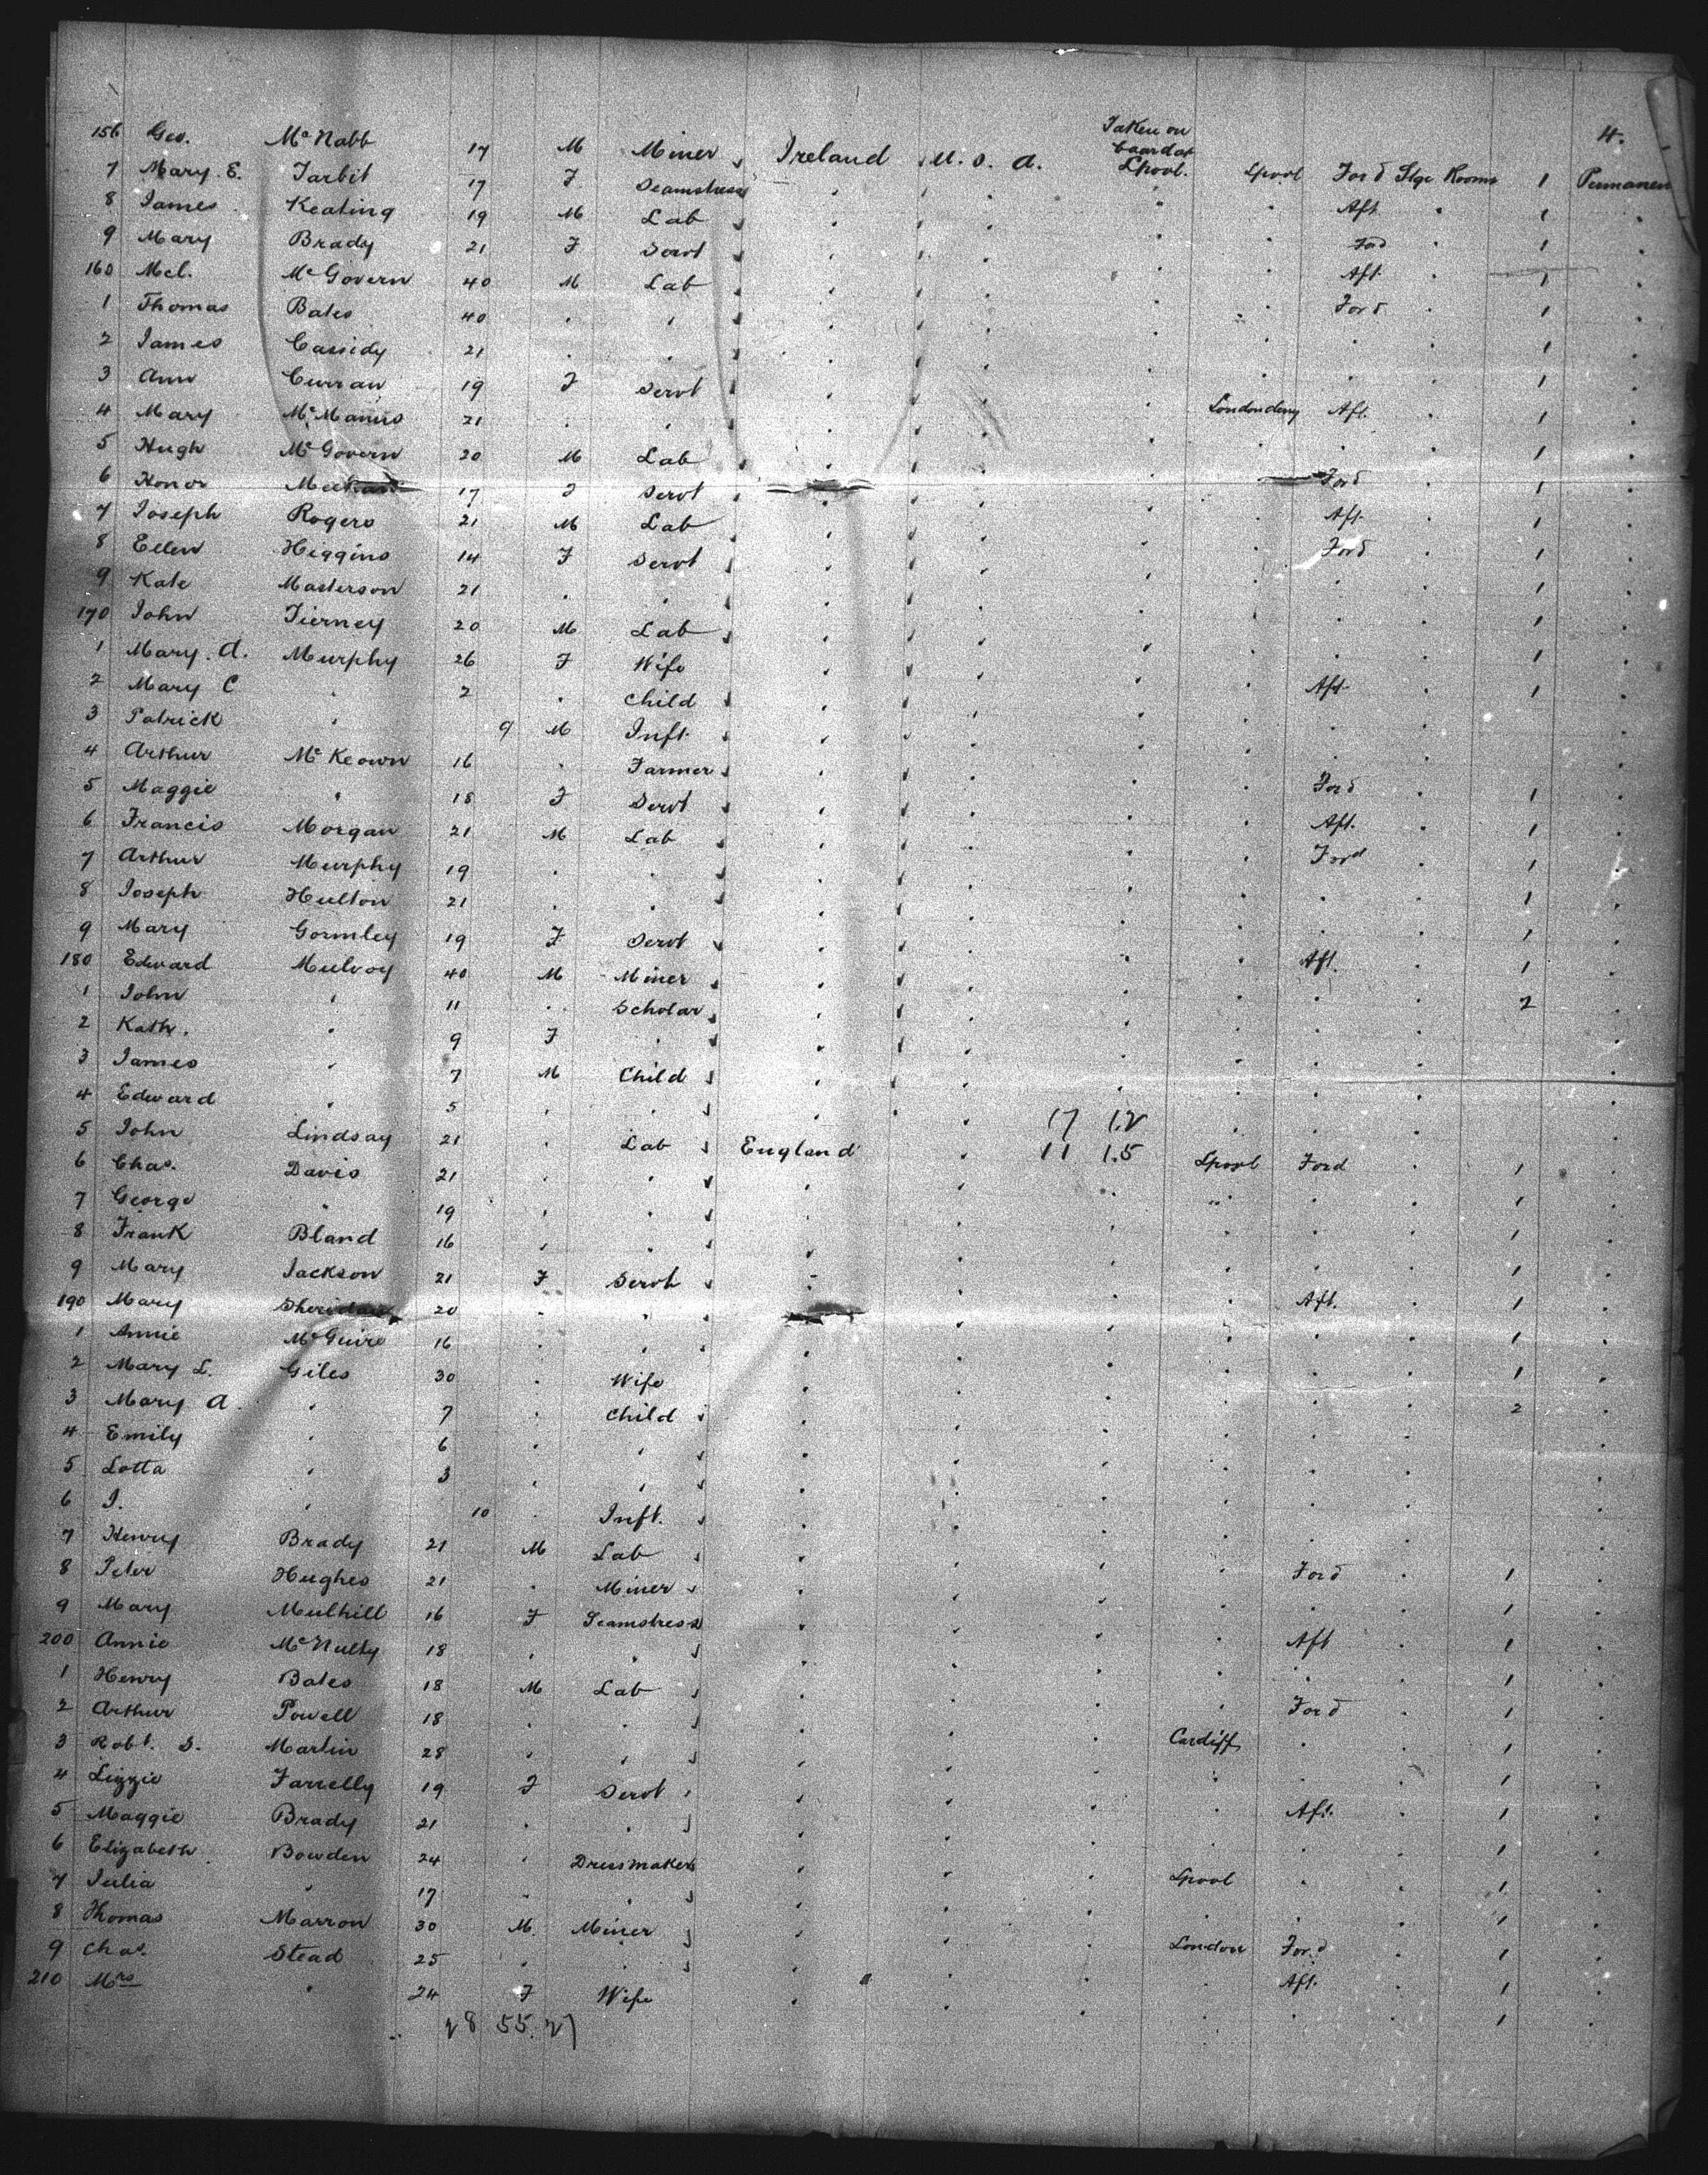 4.
156 Geo. McNabb 17 M Miner Ireland U.S.A. Taken on board at Lpool. Lpool Ford Stge Rooms 1 Permanen
7 Mary. E. Tarbit 17 F Seamstress " " " " Aft " 1 "
8 James Keating 19 M Lab " " " " Ford " 1 "
9 Mary Brady 21 F Servt " " " " Aft. " 1 "
160 Mcl. McGovern 40 M Lab " " " " Ford " 1 "
1 Thomas Bates 40 " " " " " " " " 1 "
2 James Cassidy 21 " " " " " " " " 1 "
3 Ann Curran 19 F Servt " " " Londonderry Aft. " 1 "
4 Mary McManus 21 " " " " " " " " 1 "
5 Hugh McGovern 20 M Lab " " " " Ford " 1 "
6 Honor Meehan 17 F Servt " " " " Aft. " 1 "
7 Joseph Rogers 21 M Lab " " " " Ford " 1 "
8 Ellen Higgins 14 F Servt " " " " " " 1 "
9 Kate Masterson 21 " " " " " " " " 1 "
170 John Tierney 20 M Lab " " " " " " 1 "
1 Mary. A. Murphy 26 F Wife " " " " Aft " 1 "
2 Mary C " 2 " Child " " " " " " "
3 Patrick " 9 M Inft. " " " " " " "
4 Arthur McKeown 16 " Farmer " " " " Ford " 1 "
5 Maggie " 18 F Servt " " " " Aft. " 1 "
6 Francis Morgan 21 M Lab " " " " Ford " 1 "
7 Arthur Murphy 19 " " " " " " " " 1 "
8 Joseph Hulton 21 " " " " " " " " 1 "
9 Mary Gormley 19 F Servt " " " " Aft. " 1 "
180 Edward Mulvoy 40 M Miner " " " " " " 2 "
1 John " 11 " Scholar " " " " " " "
2 Kath. " 9 F " " " " " " " "
3 James " 7 M Child " " " " " " "
4 Edward " 5 " " " " 17 12 " " " "
5 John Lindsay 21 " Lab England " 11 1.5 Lpool Ford " 1 "
6 Chas. Davis 21 " " " " " " " " 1 "
7 George " 19 " " " " " " " " 1 "
8 Frank Bland 16 " " " " " " " " 1 "
9 Mary Jackson 21 F Servt " " " " Aft. " 1 "
190 Mary Sheridan 20 " " " " " " " " 1 "
1 Annie McGuire 16 " " " " " " " " 1 "
2 Mary L. Giles 30 " Wife " " " " " " 2 "
3 Mary A. " 7 " Child " " " " " " "
4 Emily " 6 " " " " " " " " "
5 Lotta " 3 " " " " " " " " "
6 J. " 10 " Inft. " " " " " " "
7 Henry Brady 21 M Lab " " " " Ford " 1 "
8 Peter Hughes 21 " Miner " " " " " " 1 "
9 Mary Mulhill 16 F Seamstress " " " " Aft " 1 "
200 Annie McNulty 18 " " " " " " " " 1 "
1 Henry Bates 18 M Lab " " " " Ford " 1 "
2 Arthur Powell 18 " " " " " Cardiff " " 1 "
3 Robt. S. Martin 28 " " " " " " " " 1 "
4 Lizzie Farrelly 19 F Servt " " " " Aft. " 1 "
5 Maggie Brady 21 " " " " " " " " 1 "
6 Elizabeth Bowden 24 " Dressmaker " " " Lpool " " 1 "
7 Julia " 17 " " " " " " " " 1 "
8 Thomas Marron 30 M. Miner " " " London Ford " 1 "
9 Chas. Stead 25 " " " " " " Aft. " 1 "
210 Mrs " 24 F Wife " " " " " " 1 "
28 55